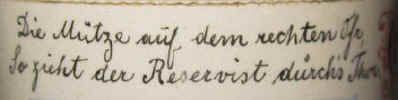 Die Mütze auf dem rechten Ohr,
So zieht der Reservist durch's Thor.